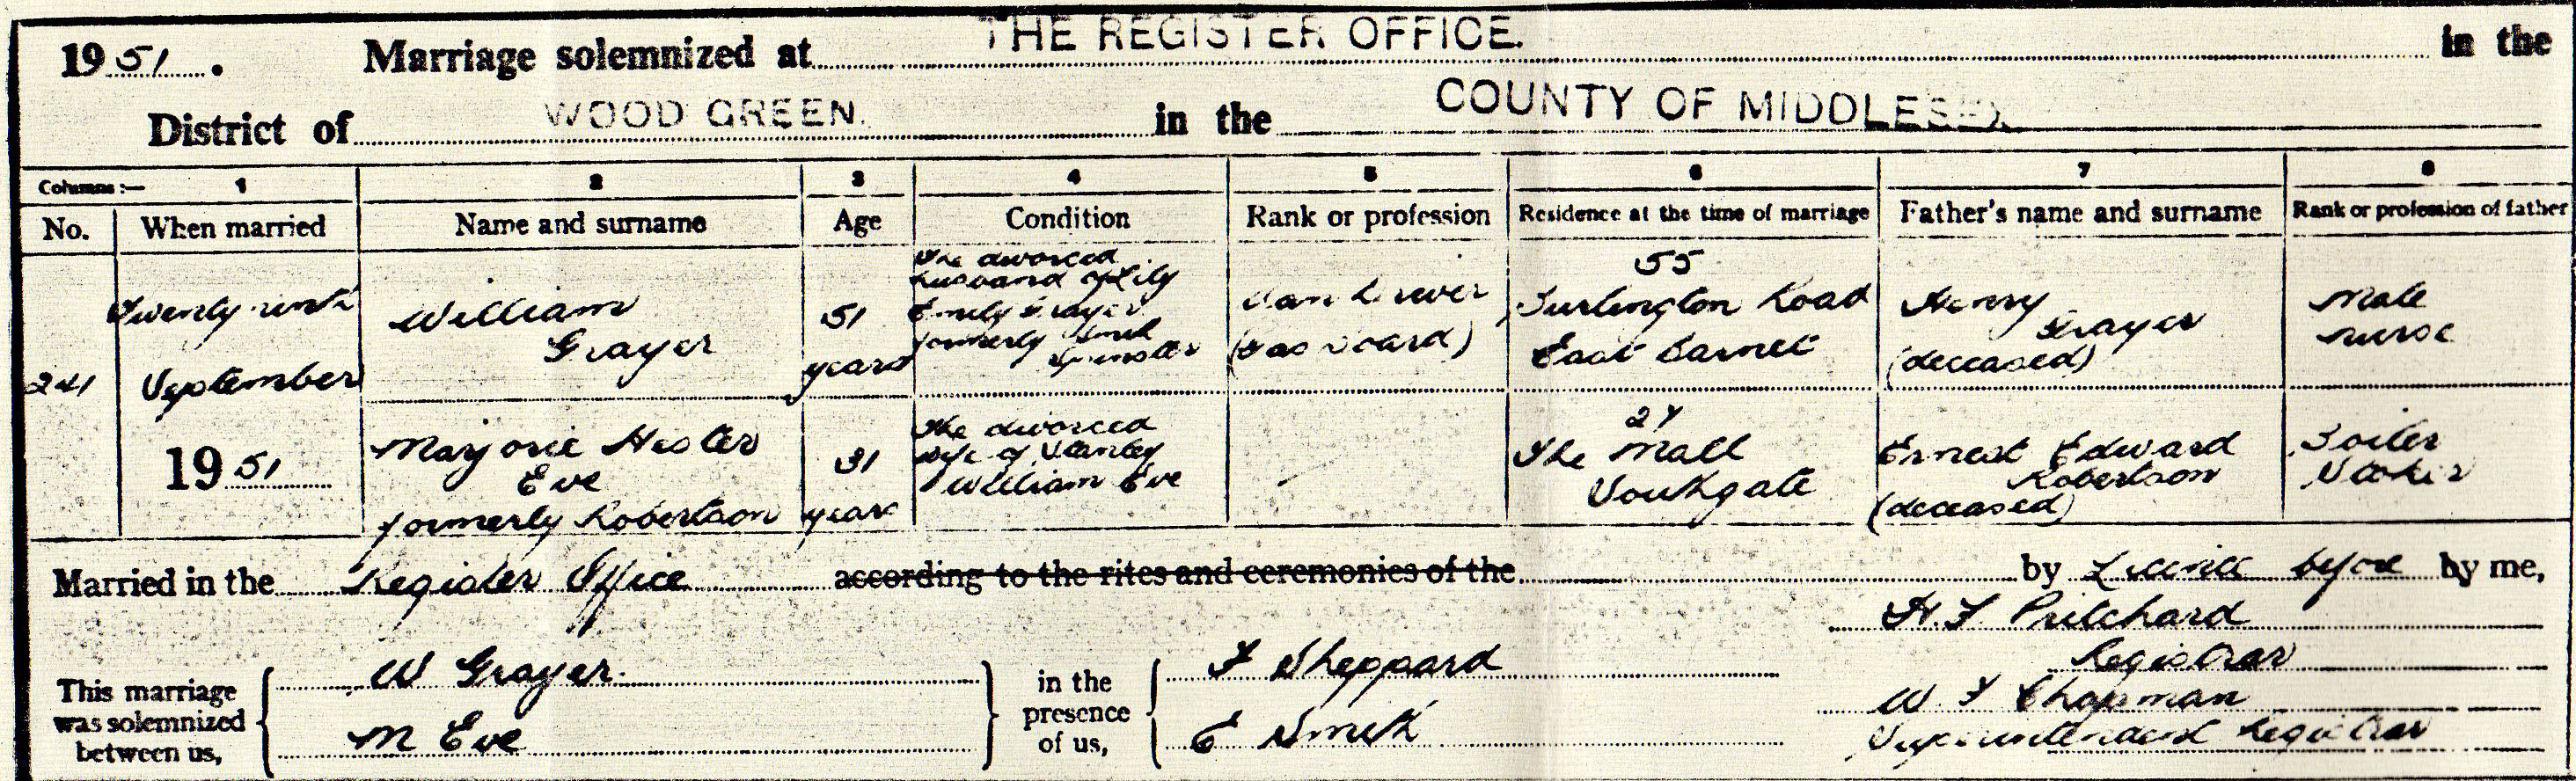 1951. Marriage solemnized at THE REGISTER OFFICE. in the
District of WOOD GREEN. in the COUNTY OF MIDDLESEX.
Columns :— 1 2 3 4 5 6 7 8
No. When married Name and surname Age Condition Rank or profession Residence at the time of marriage Father's name and surname Rank or profession of father
241
Twenty ninth
September
1951
William
Grayer
51
years
The divorced
husband of Lily
Emily Grayer
formerly Smith
Spinster
Van Driver
(Gas Board)
55
Burlington Road
East Barnet
Henry
Grayer
(deceased)
Male
nurse
Marjorie Hester
Eve
formerly Robertson
31
years
The divorced
wife of Stanley
William Eve
-
The Mall
Southgate
Ernest Edward
Robertson
(deceased)
Boiler
Stoker
Married in the Register Office according to the rites and ceremonies of the by before by me,
H.F. Pritchard
Registrar
W. F Chapman
Superintendent Registrar
This marriage
was solemnized
between us,
W Grayer.
M Eve
in the
presence
of us,
F Sheppard
E Smith